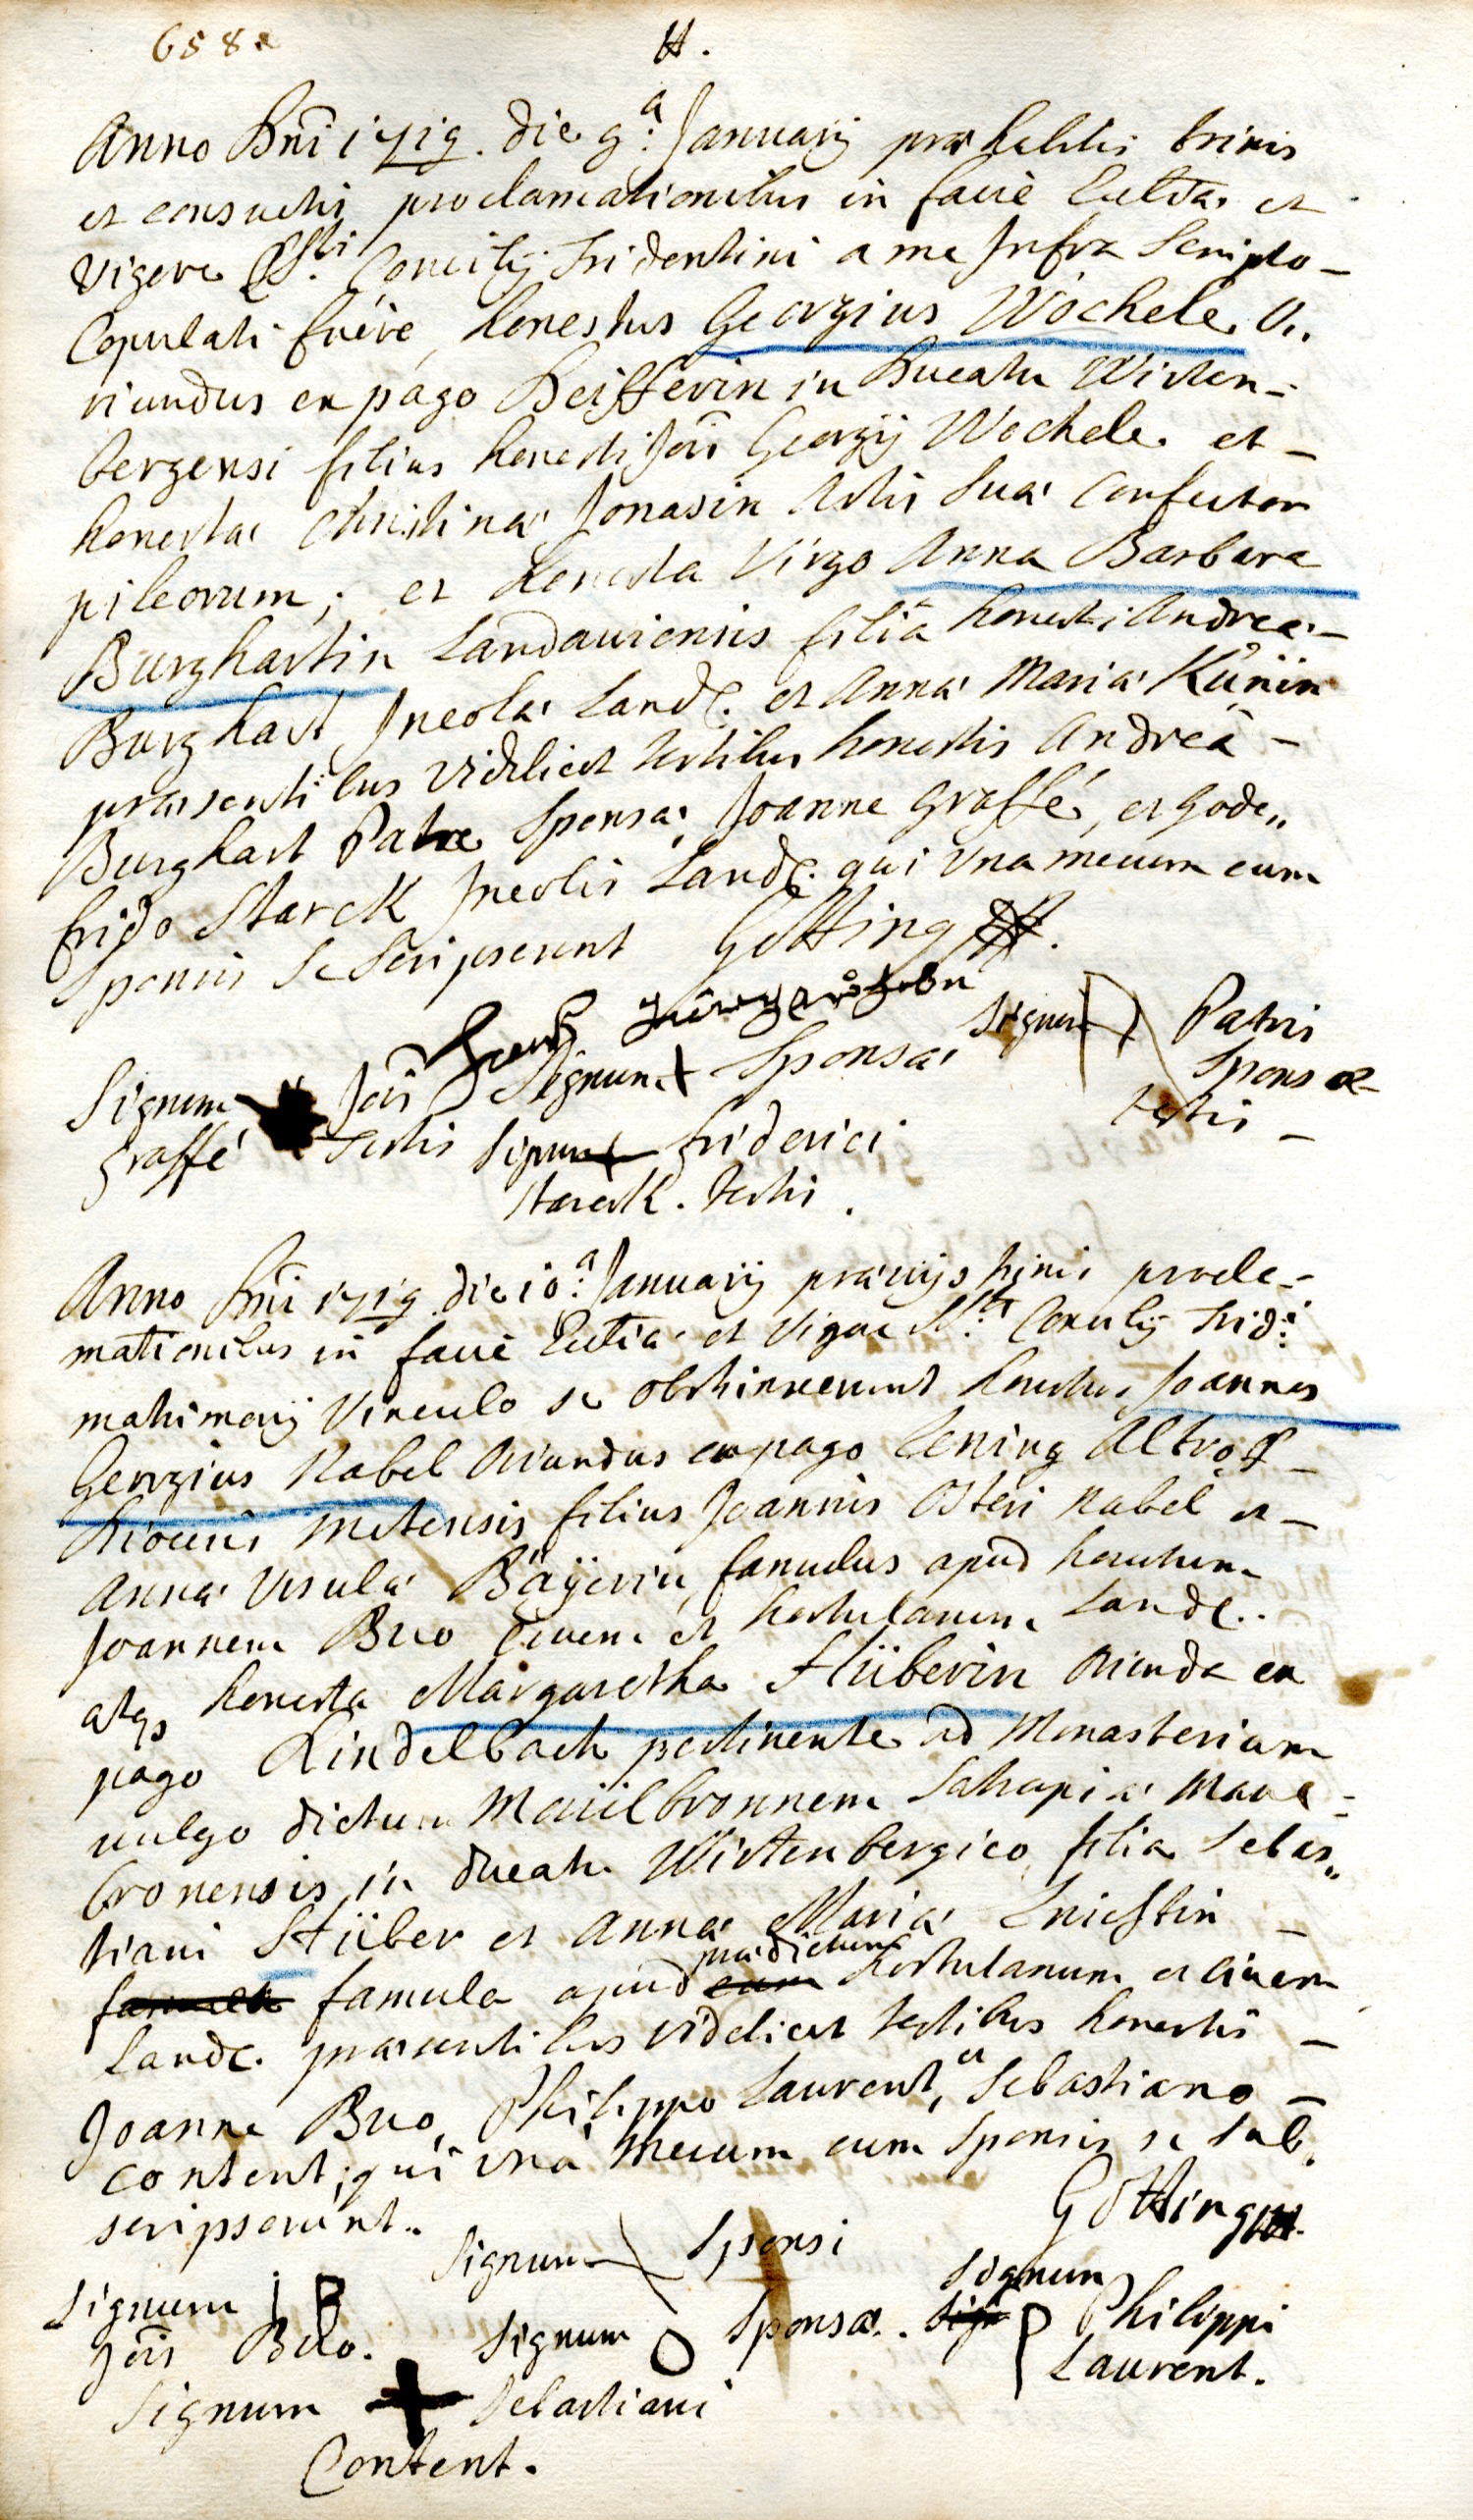 658a
H.
Anno Dni 1719. die 9.a January prae habitis trinis
et consuetis proclamationibus in facie Eccltiae et
vigore SSti. Concilij Tridentini a me Infra Scripto
Copulati fuere, honestus Georgius Wöchele O.
riundus ex pago in Ducatu Wirten-
bergensi filius honesti Jois Georgij Wochele et
honestae Christinae Jonasin Artis suae Confector
pileorum; et honesta Virgo Anna Barbara
Burghartin Landaviensis filia honesti Andreae
Burghart Incolae Landc. et Annae Mariae Künin
praesentibus videlicet testibus honestis Andrea
Burghart Patre Sponsae, Joanne graffé, et gode,,
frido Starck Incolis Landc. qui una mecum cum
sponsis se Scripserunt Götting
Signum Jois Signum + Sponsae Signum Patris
Sponsae
graffé testis Signum + friderici testis
starck. testis.
Anno Dni 1719 die 10.a January praevijs trinis procla-
mationibus in facie Ecctiae et vigore SSti Concilij Trid:i
matrimonij vinculo se obstrinxerunt honestus Joannes
Georgius Nabel oriundus ex pago Lening Altroff
Dioecesis metensis filius Joannis Osteri Nabel et
Annae Ursulae Bäyerin, famulus apud honestum
Joannem Buo Civem et hortulanum Landc.
atqs honesta Margaretha Stüberin orinda ex
pago Lindelbach pertinente ad Monasterium
vulgo dictum Maüilbronnem Satrapiae Maul-
bronensis in ducatu Wirtenbergico filia Sebas,,
tiani Stüber et Annae Mariae
famula famula apud eum praedictum hortulanum et civem
Landc. praesentibus videlicet testibus honestis
Joanne Buo, Philippo Laurent, et Sebastiano
Content; qui una mecum cum Sponsis se sub,
scripserunt.. Götting
Signum Sponsi
Signum Signum Signum
Jois Buo. Signum O Sponsae. Sign P Philippi
Laurent.
Signum + Sebastiani
Content.